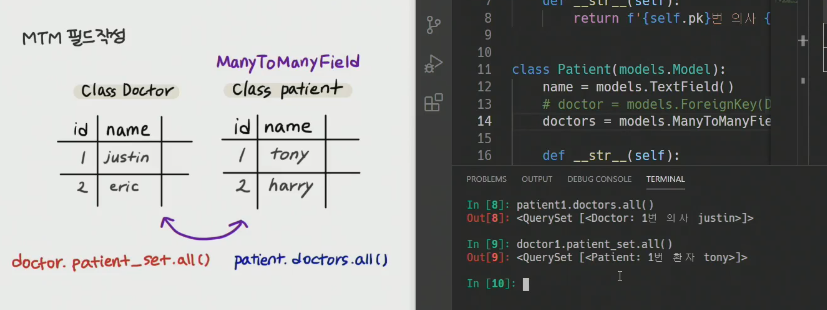 MTM 필드작성
ManyToManyField
Class Doctor
Class patient
id name
1 justin
2 eric
id name
1 tony
2 harry
doctor.patient_set.all()
patient.doctors.all()
7 def __str__(self):
8 return f'{self.pk}번 의사 {
9
10
11 class Patient(models.Model):
12 name = models.TextField()
13 # doctor = models.ForeignKey(D
14 doctors = models.ManyToManyFie
15
16 def __str__(self):
PROBLEMS OUTPUT DEBUG CONSOLE TERMINAL
In [8]: patient1.doctors.all()
Out[8]: <QuerySet [<Doctor: 1번 의사 justin>]>
In [9]: doctor1.patient_set.all()
Out[9]: <QuerySet [<Patient: 1번 환자 tony>]>
In [10]: